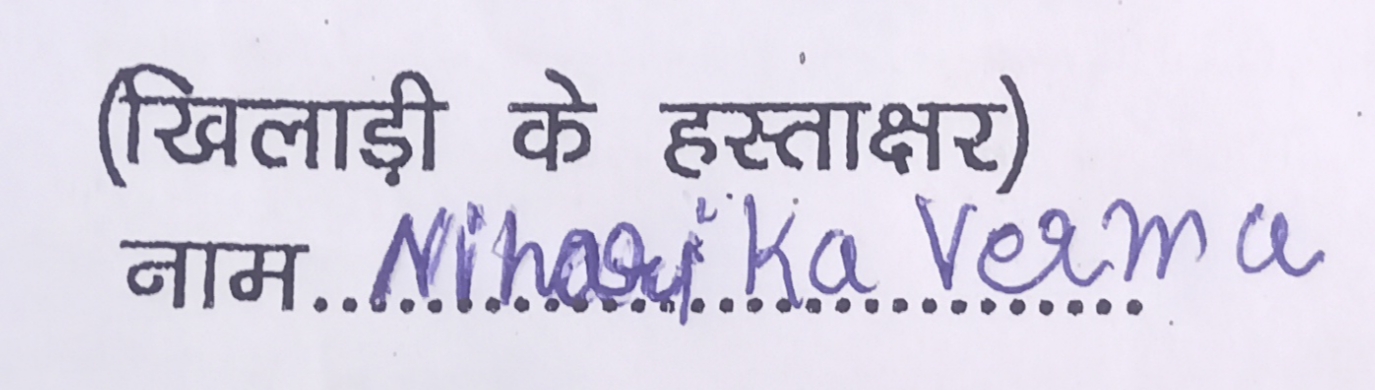 (खिलाड़ी के हस्ताक्षर)
नाम.............................. Niharika Verma